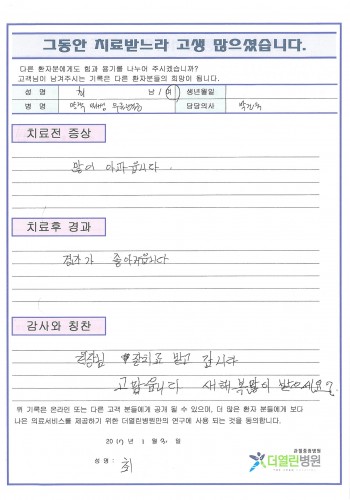 그동안 치료받느라 고생 많으셨습니다.
다른 환자분에게도 힘과 용기를 나누어 주시겠습니까?
고객님이 남겨주시는 기록은 다른 환자분들의 희망이 됩니다.
성 명 희 남 / 여 생년월일
병 명 담당의사
치료전 증상
많이 아파읍니다.
치료후 경과
점차가 좋아져읍니다
감사와 칭찬
원장님 잘치료 받고 갑니다
고맙읍니다 새해 복많이 받으세요
위 기록은 온라인 또는 다른 고객 분들에게 공개 될 수 있으며, 더 많은 환자 분들에게 보다
나은 의료서비스를 제공하기 위한 더열린병원만의 연구에 사용 되는 것을 동의합니다.
년 1 월 일
성 명 : 희
관절중점병원
더열린병원